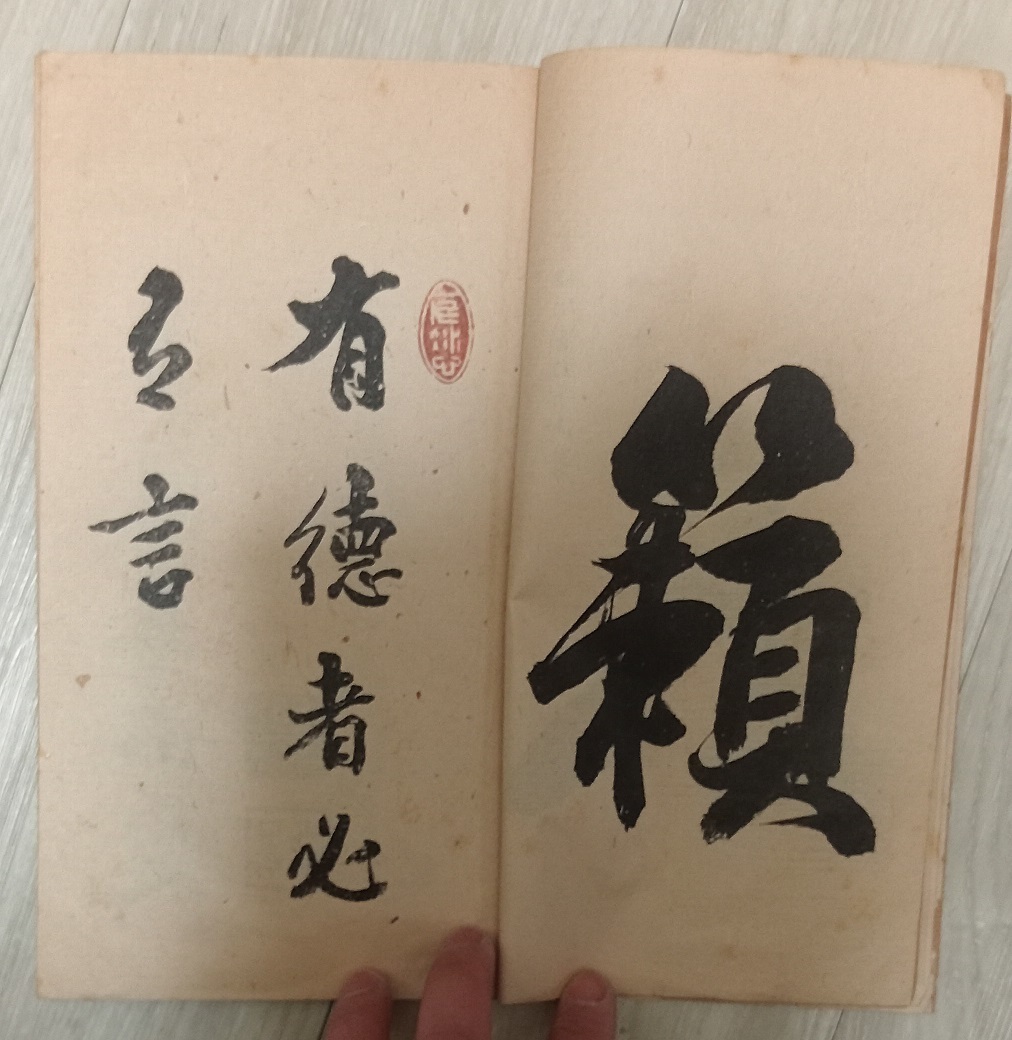 籟
有德者必
有言